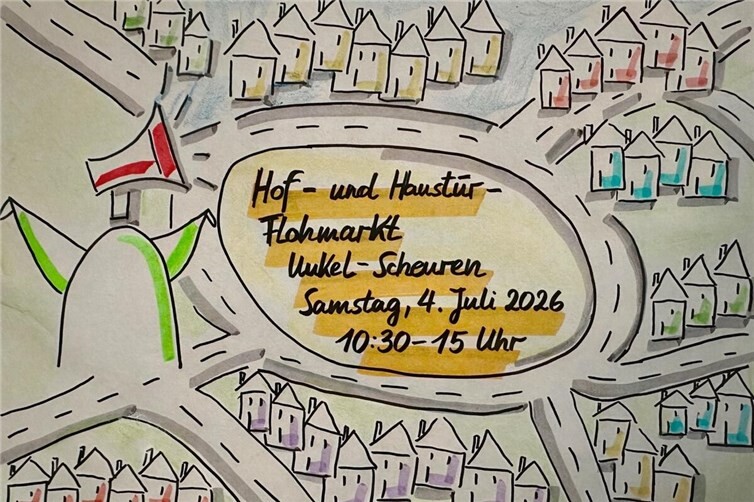 Hof- und Haustür-
Flohmarkt
Unkel-Scheuren
Samstag, 4. Juli 2026
10:30-15 Uhr